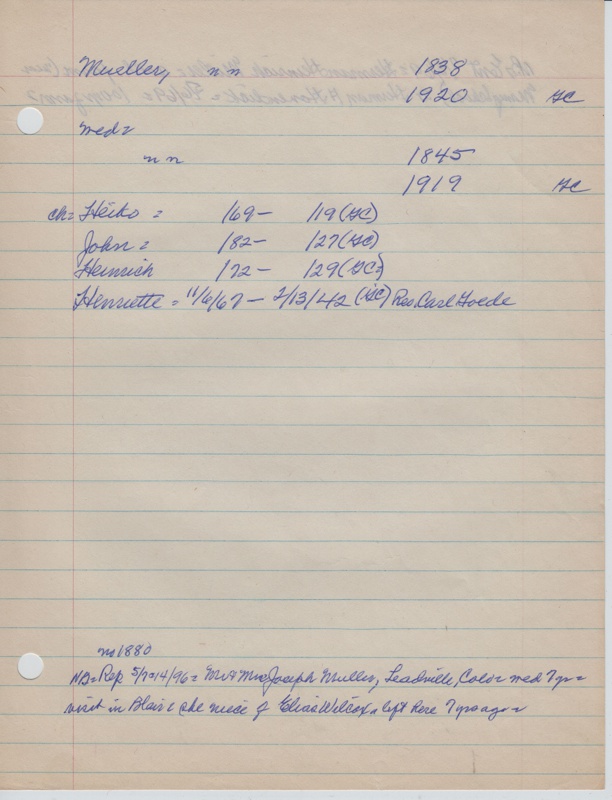 Mueller, n n 1838
1920 GC
med=
n n 1845
1919 GC
ch= Heiko = /69- /19 (GC)
John = /82- /27 (GC)
Heinrich /72- /29 (GC)
Henriette = 11/6/67 - 2/13/42 (GC) Rev. Carl Goede
no 1880
NB= Rep 5/7=14/96= Mr & Mrs Joseph Muller, Leadville, Colo= med 7 yr=
visit in Blair= she niece of Elias Wilcox= left here 7 yrs ago=